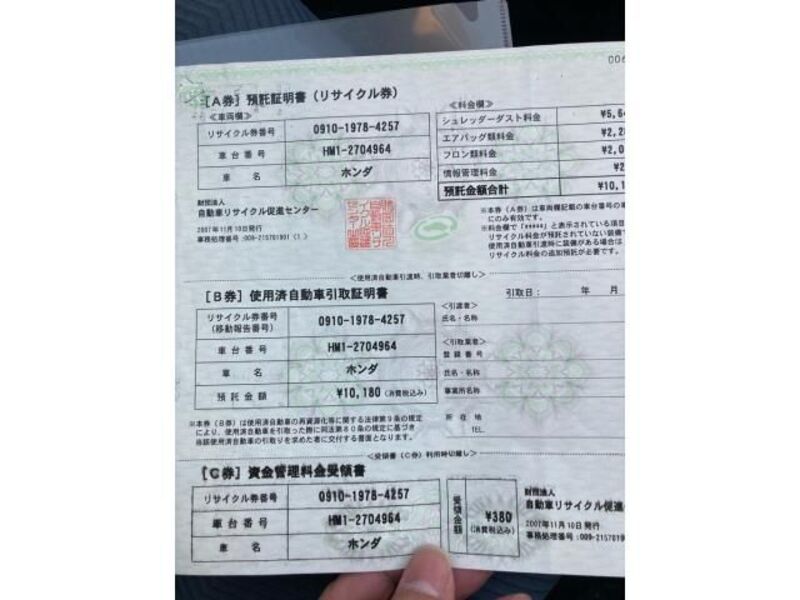 006
［A券］預託証明書（リサイクル券）
≪車両欄≫
リサイクル券番号 0910-1978-4257
車台番号 HM1-2704964
車名 ホンダ
≪料金欄≫
シュレッダーダスト料金 ¥5,6
エアバッグ類料金 ¥2,2
フロン類料金 ¥2,0
情報管理料金 ¥2
預託金額合計 ¥10,1
財団法人
自動車リサイクル促進センター
2007年11月10日発行
事務処理番号:009-215701901 (1)
※本券（A券）は車両欄記載の車台番号の
にのみ有効です。
※料金欄で「*****」と表示されている項目
リサイクル料金が預託されていない装備
使用済自動車引渡時に装備がある場合は
リサイクル料金の追加預託が必要です。
＜使用済自動車引渡時、引取業者切離し＞
［B券］使用済自動車引取証明書
引取日： 年 月
リサイクル券番号
(移動報告番号) 0910-1978-4257
車台番号 HM1-2704964
車名 ホンダ
預託金額 ¥10,180 (消費税込み)
＜引渡者＞
氏名・名称
＜引取業者＞
登録番号
氏名・名称
事業所名称
所在地
TEL.
※本券（B券）は使用済自動車の再資源化等に関する法律第9条の規定
により、使用済自動車を引取った際に同法第80条の規定に基づき
当該使用済自動車の引取りを求めた者に交付する書面となります。
＜受領書（C券）利用時切離し＞
［C券］資金管理料金受領書
リサイクル券番号 0910-1978-4257
車台番号 HM1-2704964
車名 ホンダ
受領金額 ¥380
(消費税込み)
財団法人
自動車リサイクル促進
2007年11月10日発行
事務処理番号:009-21570190